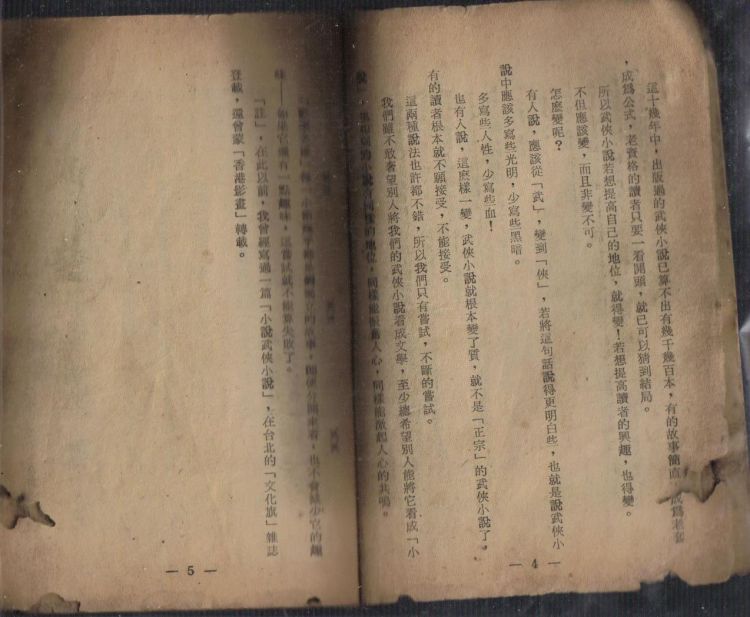 這十幾年中，出版過的武俠小說已算不出有幾千幾百本，有的故事簡直 成為老套
，成為公式，老資格的讀者只要一看開頭，就已可以猜到結局。
所以武俠小說若想提高自己的地位，就得變！若想提高讀者的興趣，也得變。
不但應該變，而且非變不可。
怎麼變呢？
有人說，應該從「武」，變到「俠」，若將這句話說得更明白些，也就是說武俠小
說中應該多寫些光明，少寫些黑暗。
多寫些人性，少寫些血！
也有人說，這麼樣一變，武俠小說就根本變了質，就不是「正宗」的武俠小說了。
有的讀者根本就不願接受，不能接受。
這兩種說法也許都不錯，所以我們只有嘗試，不斷的嘗試。
我們雖不敢奢望別人將我們的武俠小說看成文學，至少總希望別人能將它看成「小
說」，和別的小說有同樣的地位，同樣能振奮人心，同樣能激起人心的共鳴。
— 4 —
的故事，即使分開來看，也不會減少它的趣
味——如果它還有一點趣味，這嘗試就不能算失敗了。
「註」，在此以前，我曾經寫過一篇「小說武俠小說」，在台北的「文化旗」雜誌
登載，還曾蒙「香港影畫」轉載。
— 5 —